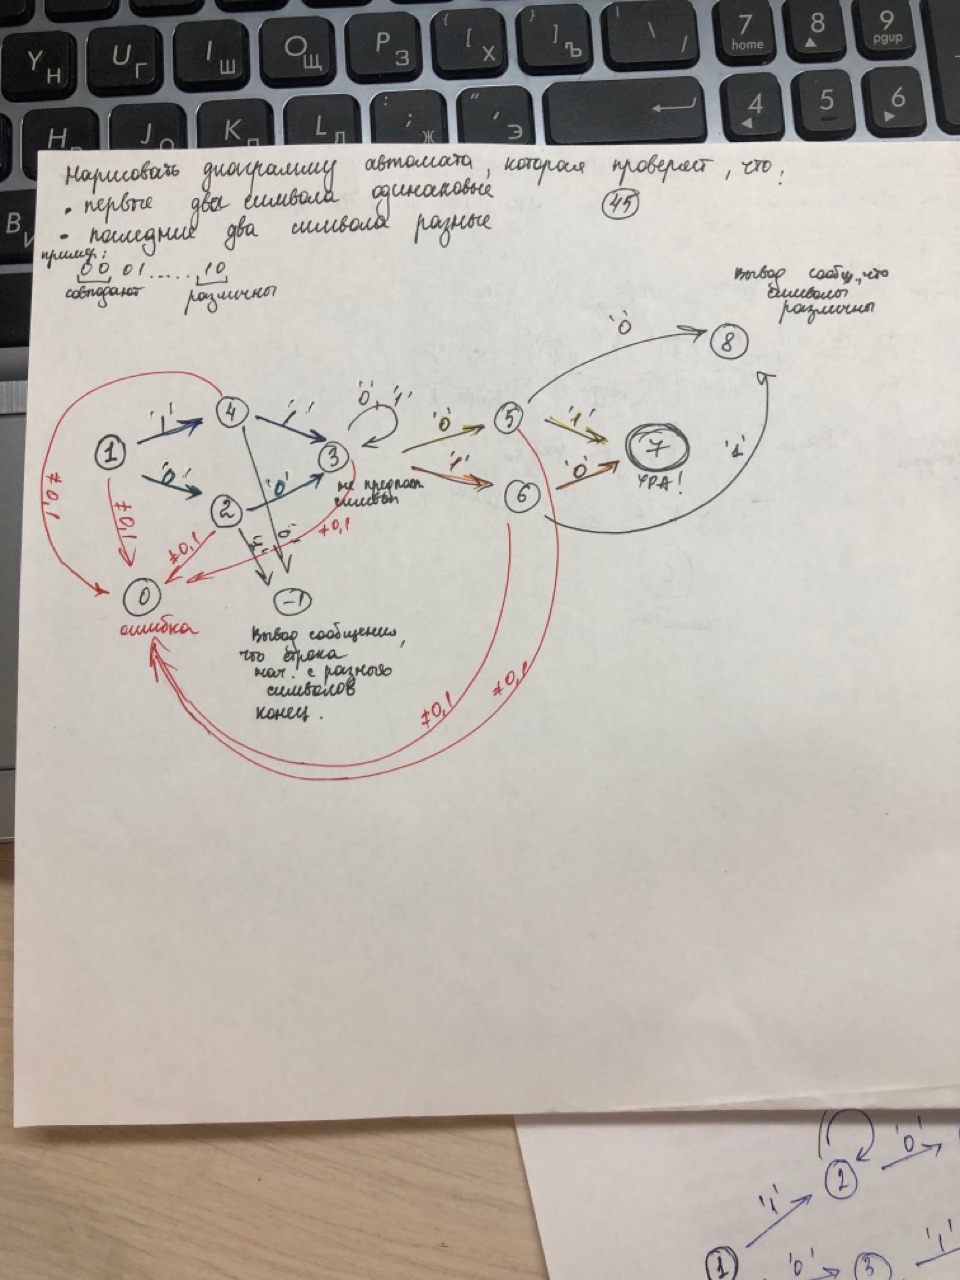 Y Н
U Г
I Ш
O Щ
P З
[ { Х
] } Ъ
| \ /
7 home
8
9 pgup
H
J О
K Л
L Д
: ; Ж
" ' Э
4
5
6
В
Нарисовать диаграмму автомата, которая проверяет, что:
• первые два символа одинаковые
45
• последние два символа разные
пример:
00 01......10
совпадают различны
Вывод сообщ., что
символы
различны
'0'
8
'0', '1'
'1' 4 '1' '0' 5 '1'
1 3 7 '1'
'0' '0' не предпосл. '1' 6 '0' УРА!
символ
2
≠0,1 ≠0,1 ≠0,1 '1' '0' ≠0,1
0 -1
ошибка
Вывод сообщения,
что строка
нач. с разных
символов
конец.
≠0,1 ≠0,1
'0'
2
'1'
'1'
1 '0' 3